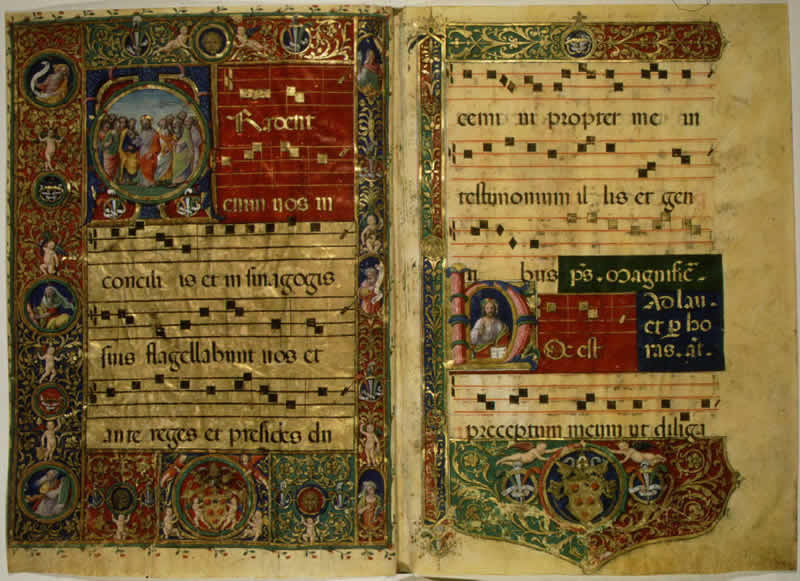 TRadent
enim uos in
concili is et in sinagogis
suis flagellabunt uos et
ante reges et presides du
cemi ni propter me in
testimonium il lis et gen
ti bus ps. Magnific̄.
Ad lau-
et ꝑ ho
HOc est
ras. añ.
preceptum meum ut diliga